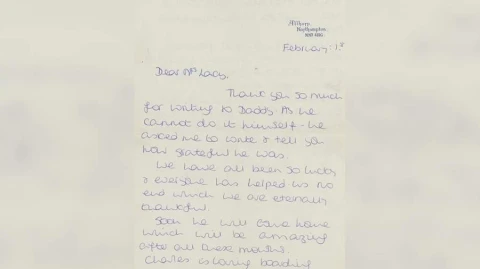 Althorp,
Northampton,
February: 1st
Dear Mrs Lacy,
Thank you so much
for writing to Daddy. As he
cannot do it himself - he
asked me to write & tell you
how grateful he was.
We have all been so lucky
& everyone has helped us no
end which we are eternally
thankful.
Soon he will come home
which will be amazing
after all these months.
Charles is loving boarding